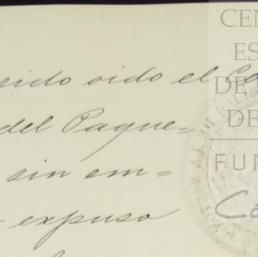 sido oido el
del Paque-
sin em-
expuso
CEN
ES
DE
DE
FUN
Ca